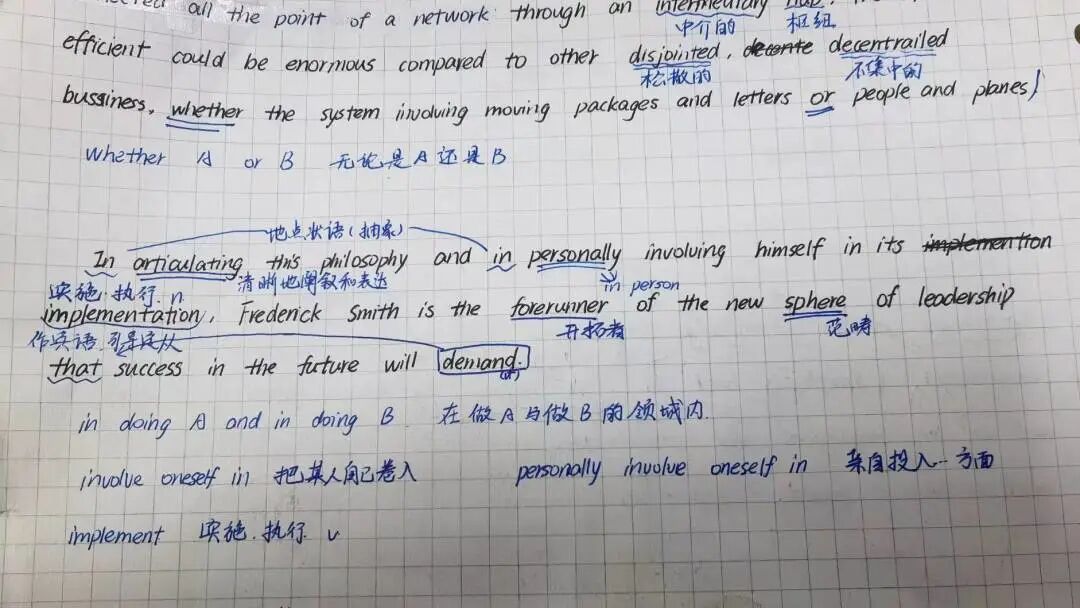 all the point of a network through an intermediary hub.
中介的 枢纽
efficient could be enormous compared to other disjointed, decente decentrailed
松散的 不集中的
bussiness, whether the system involving moving packages and letters or people and planes)
whether A or B 无论是A还是B
地点状语(抽象)
In articulating this philosophy and in personally involving himself in its implemention
实施.执行.n 清晰地阐叙和表达 in person
implementation, Frederick Smith is the forerunner of the new sphere of leadership
作宾语.引导定从 开拓者 范畴
that success in the future will demand.
in doing A and in doing B 在做A与做B的领域内.
involve oneself in 把某人自己卷入 personally involve oneself in 亲自投入…方面
implement 实施.执行. v